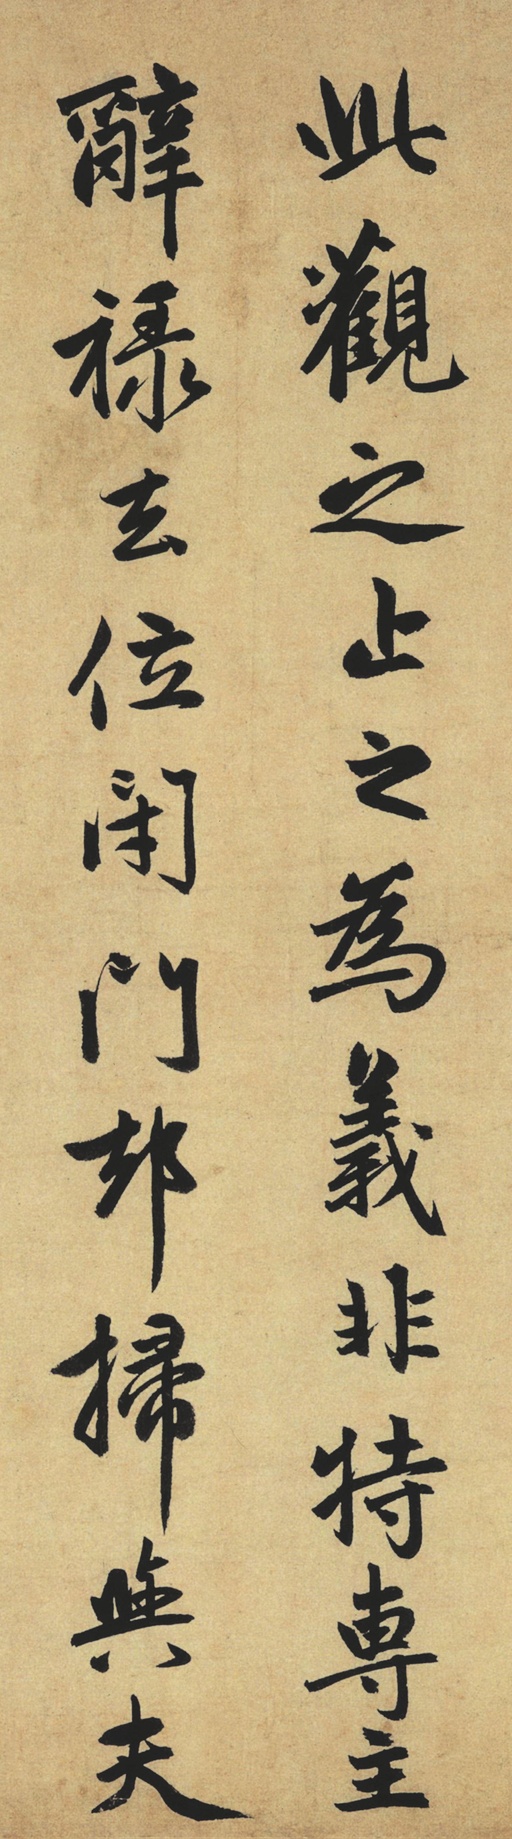 此觀之止之為義非特專主
辭祿去位閉門却掃與夫